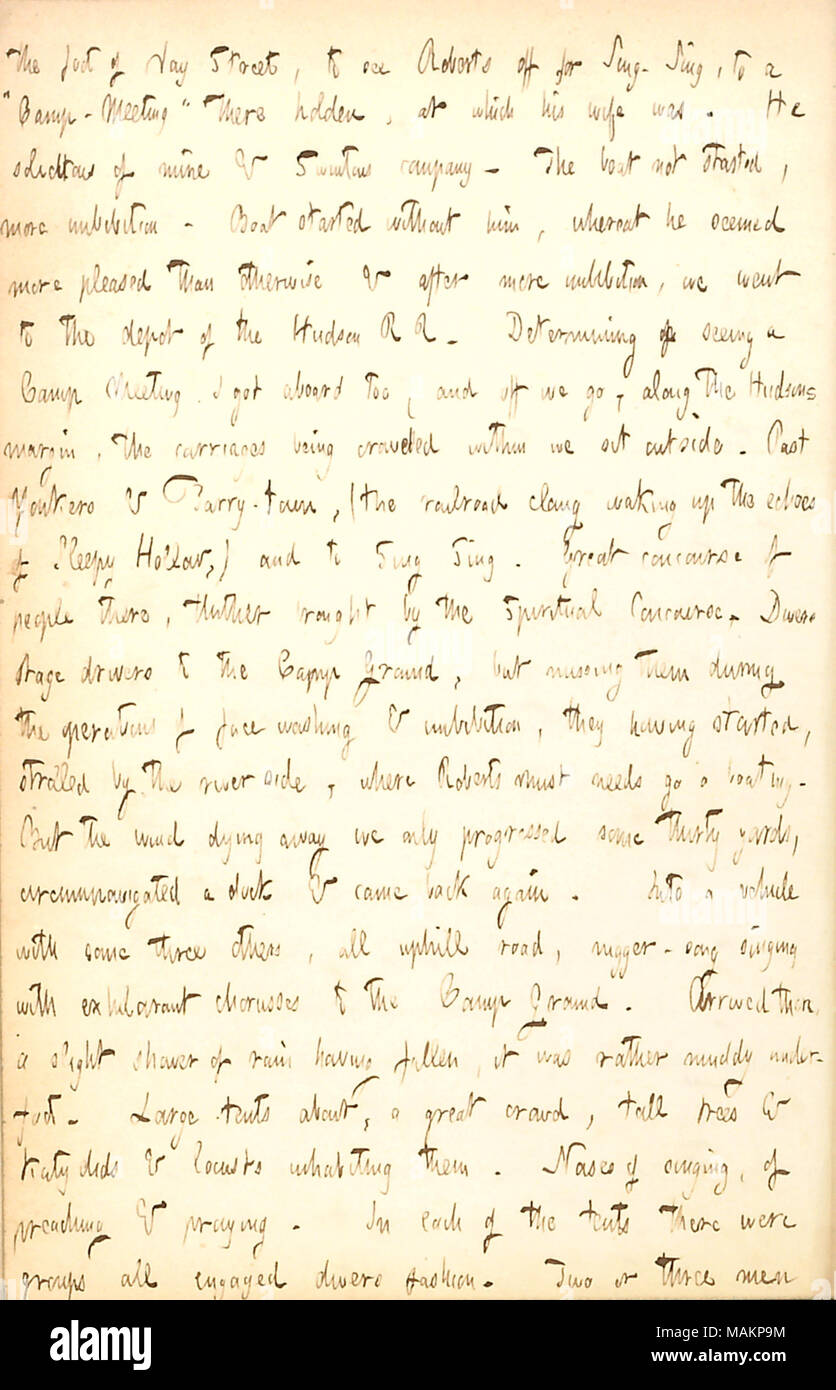 the foot of Jay Street, to see Roberts off for Sing-Sing, to a
"Camp-Meeting" there holden, at which his wife was. He
solicitous of mine & Swintons company. The boat not started,
more imbibition. Boat started without him, whereat he seemed
more pleased than otherwise & after more imbibition, we went
to the depot of the Hudson R R. Determining of seeing a
Camp Meeting I got aboard too, and off we go, along the Hudsons
margin, the carriages being crowded within we sit outside. Past
Yonkers & Tarry-town, (the railroad clang waking up the echoes
of Sleepy Hollow,) and to Sing Sing. Great concourse of
people there, thither brought by the Spiritual Concourse. Divers
stage drivers to the Camp Ground, but missing them during
the operations of face washing & imbibition, they having started,
strolled by the river side, where Roberts must needs go a boating.
But the wind dying away we only progressed some thirty yards,
circumnavigated a dock & came back again. Into a vehicle
with some three others, all uphill road, nigger-song singing
with exhilarant chorusses to the Camp Ground. Arrived there,
a slight shower of rain having fallen, it was rather muddy under-
foot. Large tents about, a great crowd, tall trees &
Katydids & locusts inhabiting them. Noises of singing, of
preaching & praying. In each of the tents there were
groups all engaged divers fashion. Two or three men
alamy
Image ID: MAKP9M
www.alamy.com